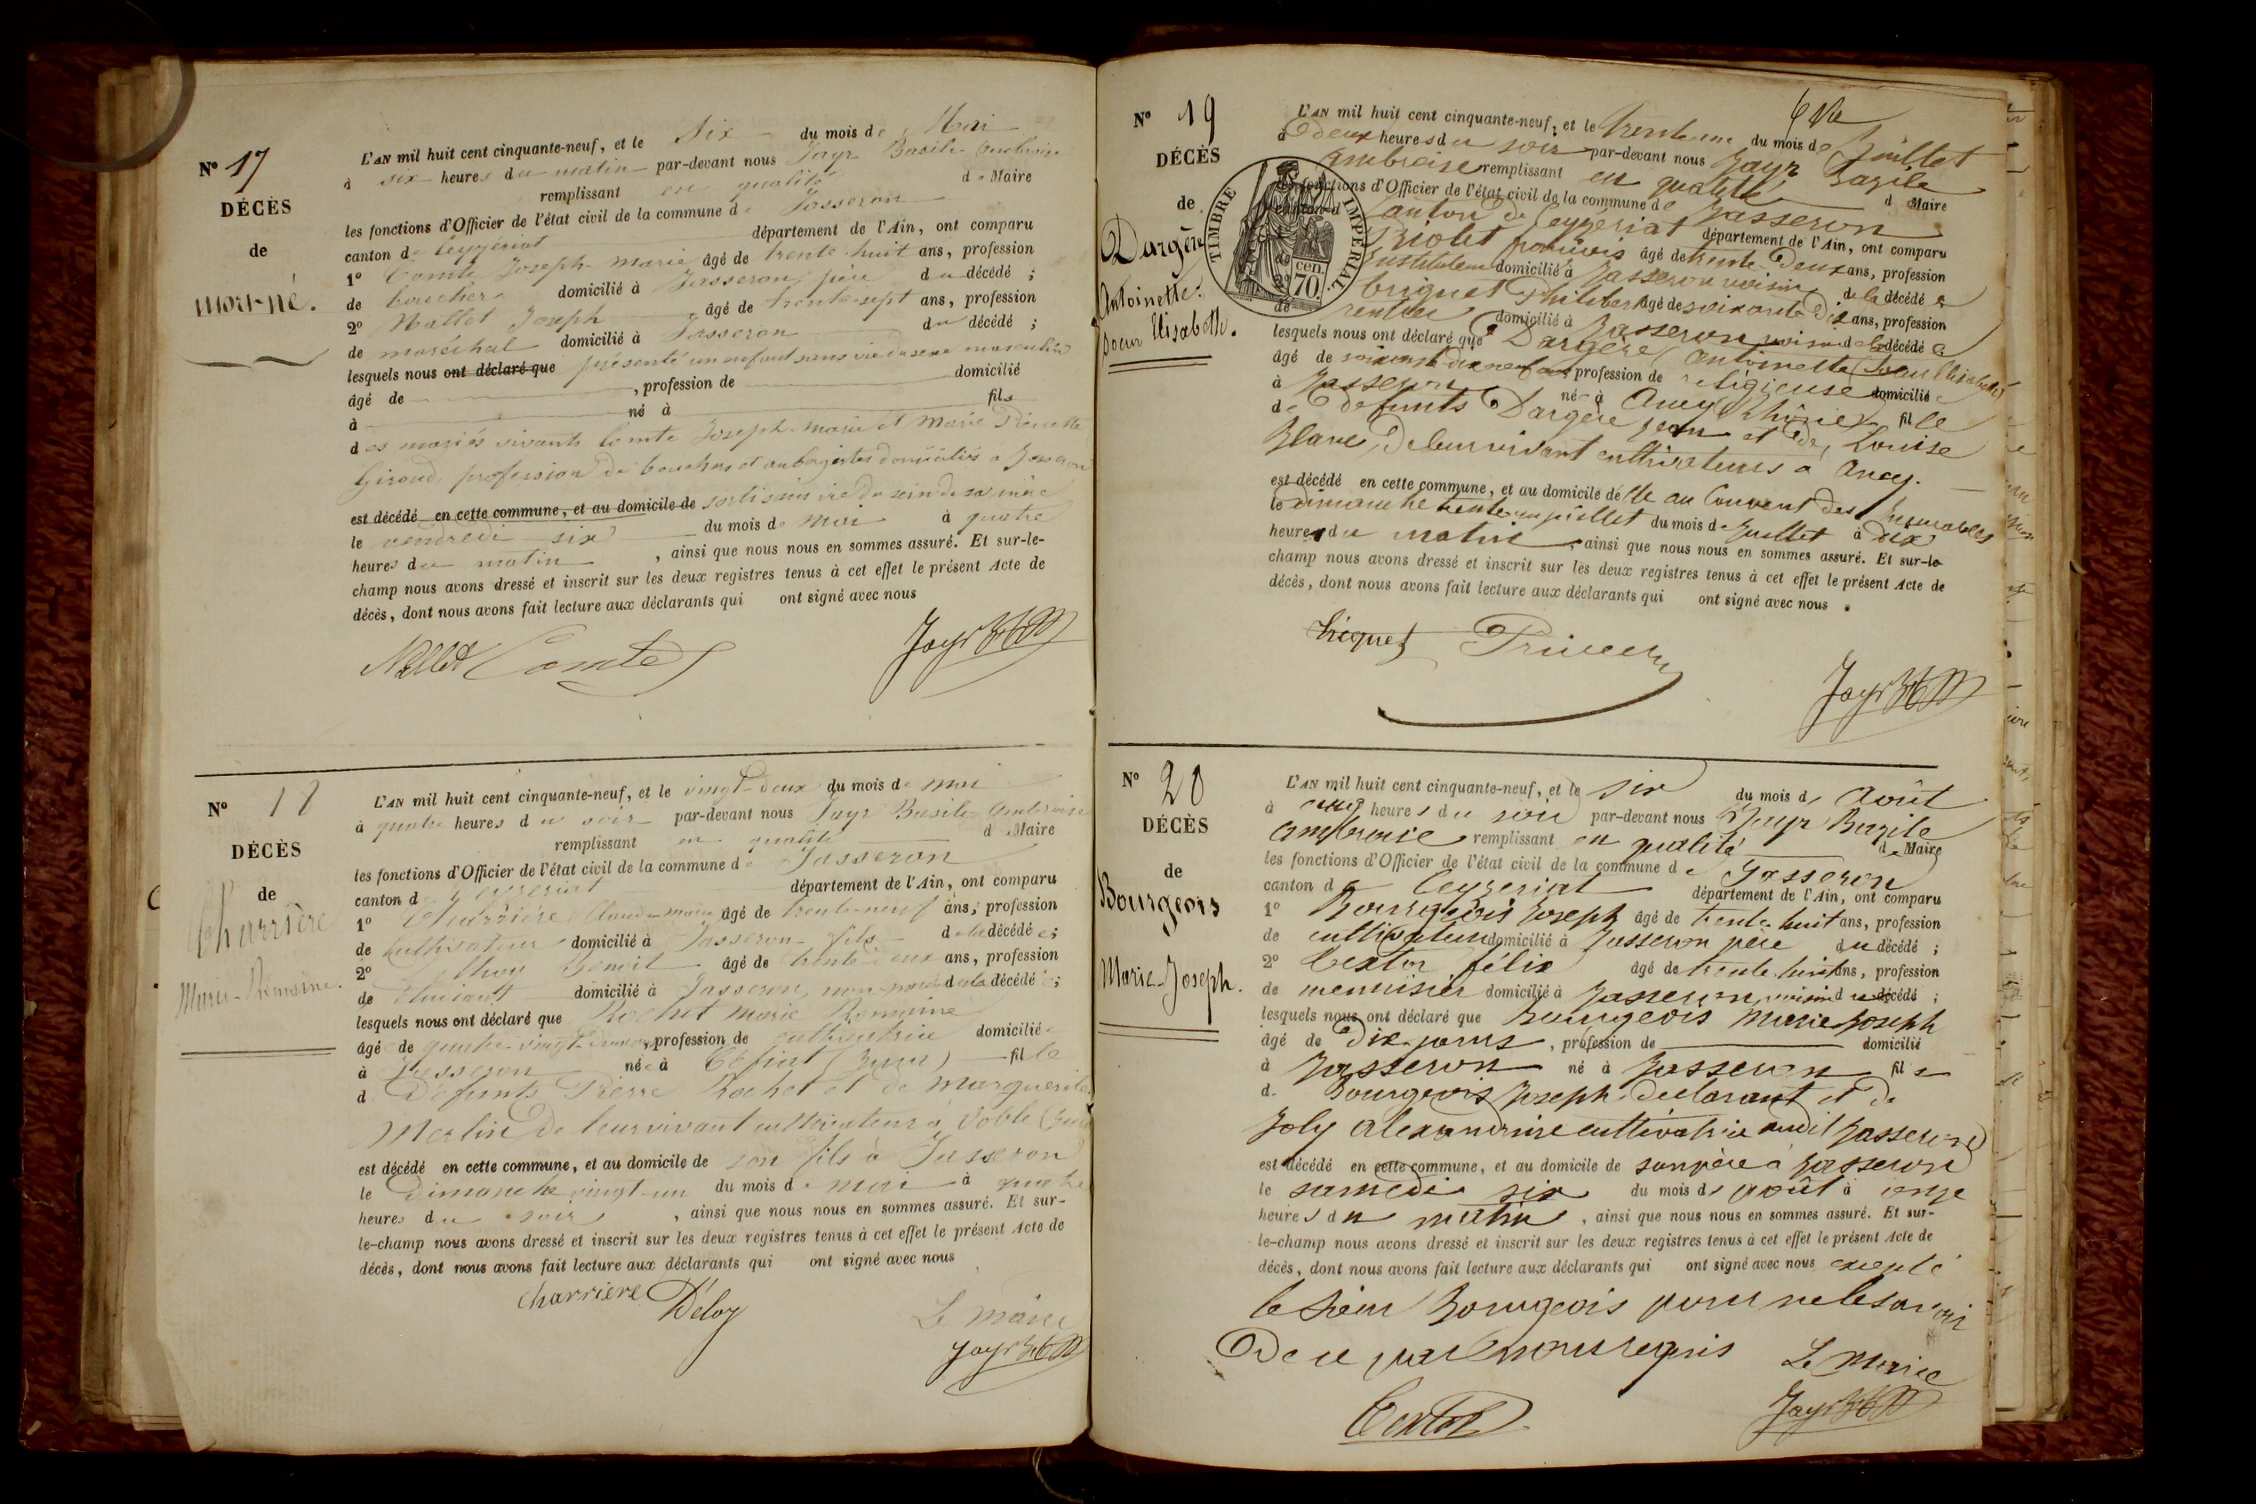 N° 17
DÉCÈS
de
mort-né.
L'AN mil huit cent cinquante-neuf, et le six du mois de Mai
à six heures du matin par-devant nous Jayr Basile Ambroise
remplissant en qualité de Maire
les fonctions d'Officier de l'état civil de la commune de Jasseron
canton de Ceyzériat département de l'Ain, ont comparu
1° Comte Joseph-marie âgé de trente huit ans, profession
de boucher domicilié à Jasseron père du décédé ;
2° Nallet Joseph âgé de trente-sept ans, profession
de maréchal domicilié à Jasseron du décédé ;
lesquels nous ont déclaré que présenté un enfant sans vie du sexe masculin
âgé de , profession de domicilié
à né à fils
des mariés vivants Comte Joseph-marie et Marie Pierrette
Giroud, profession de bouchers et aubergistes domiciliés à Jasseron
est décédé en cette commune, et au domicile de sorti sans vie du sein de sa mère
le vendredi six du mois de mai à quatre
heures du matin , ainsi que nous nous en sommes assuré. Et sur-le-
champ nous avons dressé et inscrit sur les deux registres tenus à cet effet le présent Acte de
décès, dont nous avons fait lecture aux déclarants qui ont signé avec nous
Nallet Comte Jayr
N° 18
DÉCÈS
de
Charrière
Marie-Romaine.
L'AN mil huit cent cinquante-neuf, et le vingt-deux du mois de mai
à quatre heures du soir par-devant nous Jayr Basile Ambroise
remplissant en qualité de Maire
les fonctions d'Officier de l'état civil de la commune de Jasseron
canton de Ceyzeriat département de l'Ain, ont comparu
1° Charrière Claude-marie âgé de trente-neuf ans, profession
de cultivateur domicilié à Jasseron fils de la décédée ;
2° âgé de trente-deux ans, profession
de domicilié à Jasseron de la décédée ;
lesquels nous ont déclaré que Rochet Marie Romaine
âgé de quatre-vingt , profession de cultivatrice domiciliée
à Jasseron née à (Jura) fille
de Défunts Pierre Rochet et de Marguerite
Merlin de leur vivant cultivateurs à
est décédé en cette commune, et au domicile de son fils à Jasseron
le Dimanche vingt-un du mois de mai à quatre
heures du soir , ainsi que nous nous en sommes assuré. Et sur-
le-champ nous avons dressé et inscrit sur les deux registres tenus à cet effet le présent Acte de
décès, dont nous avons fait lecture aux déclarants qui ont signé avec nous
charriere Déloy Le Maire
Jayr
N° 19
DÉCÈS
de
Dargère
Antoinette.
soeur Elisabeth.
TIMBRE IMPÉRIAL
70 cen.
L'AN mil huit cent cinquante-neuf, et le trente-un du mois de Juillet
à deux heures du soir par-devant nous Jayr Bazile
Ambroise remplissant en qualité de Maire
les fonctions d'Officier de l'état civil de la commune de Jasseron
canton de Ceyzériat département de l'Ain, ont comparu
françois âgé de trente-Deux ans, profession
Instituteur domicilié à Jasseron voisin de la décédée
Philibert âgé de soixante Dix ans, profession
de rentier domicilié à Jasseron voisin de la décédée
lesquels nous ont déclaré que Dargère Antoinette (Soeur Elisabeth)
âgé de soixante dix neuf ans, profession de religieuse domiciliée
à Jasseron née à Ancy (Rhône) fille
de Défunts Dargère Jean et de Louise
Blanc, De leur vivant cultivateurs à Ancy.
est décédé en cette commune, et au domicile d'elle au Couvent des Incurables
le Dimanche trente un juillet du mois de Juillet à dix
heures du matin , ainsi que nous nous en sommes assuré. Et sur-le
champ nous avons dressé et inscrit sur les deux registres tenus à cet effet le présent Acte de
décès, dont nous avons fait lecture aux déclarants qui ont signé avec nous .
Jayr
N° 20
DÉCÈS
de
Bourgeois
Marie-Joseph.
L'AN mil huit cent cinquante-neuf, et le six du mois d'Août
à cinq heures du soir par-devant nous Jayr Bazile
Ambroise remplissant en qualité de Maire
les fonctions d'Officier de l'état civil de la commune de Jasseron
canton de Ceyzeriat département de l'Ain, ont comparu
1° Bourgeois Joseph âgé de trente-huit ans, profession
de cultivateur domicilié à Jasseron père du décédé ;
2° Certor félix âgé de trente-huit ans, profession
de menuisier domicilié à Jasseron voisin du décédé ;
lesquels nous ont déclaré que Bourgeois Marie Joseph
âgé de Dix jours , profession de domicilié
à Jasseron né à Jasseron fils
de Bourgeois Joseph déclarant et de
Joly Alexandrine cultivatrice audit Jasseron
est décédé en cette commune, et au domicile de son père à Jasseron
le samedi six du mois d'août à onze
heures du matin , ainsi que nous nous en sommes assuré. Et sur-
le-champ nous avons dressé et inscrit sur les deux registres tenus à cet effet le présent Acte de
décès, dont nous avons fait lecture aux déclarants qui ont signé avec nous excepté
le sieur Bourgeois pour ne le savoir
De ce par nous requis Le Maire
Certor Jayr